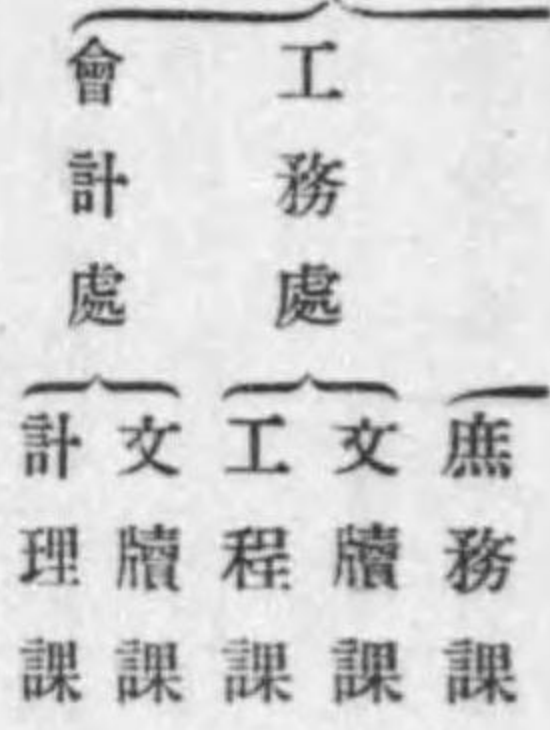 工務處
會計處
庶務課
文牘課
工程課
文牘課
計理課